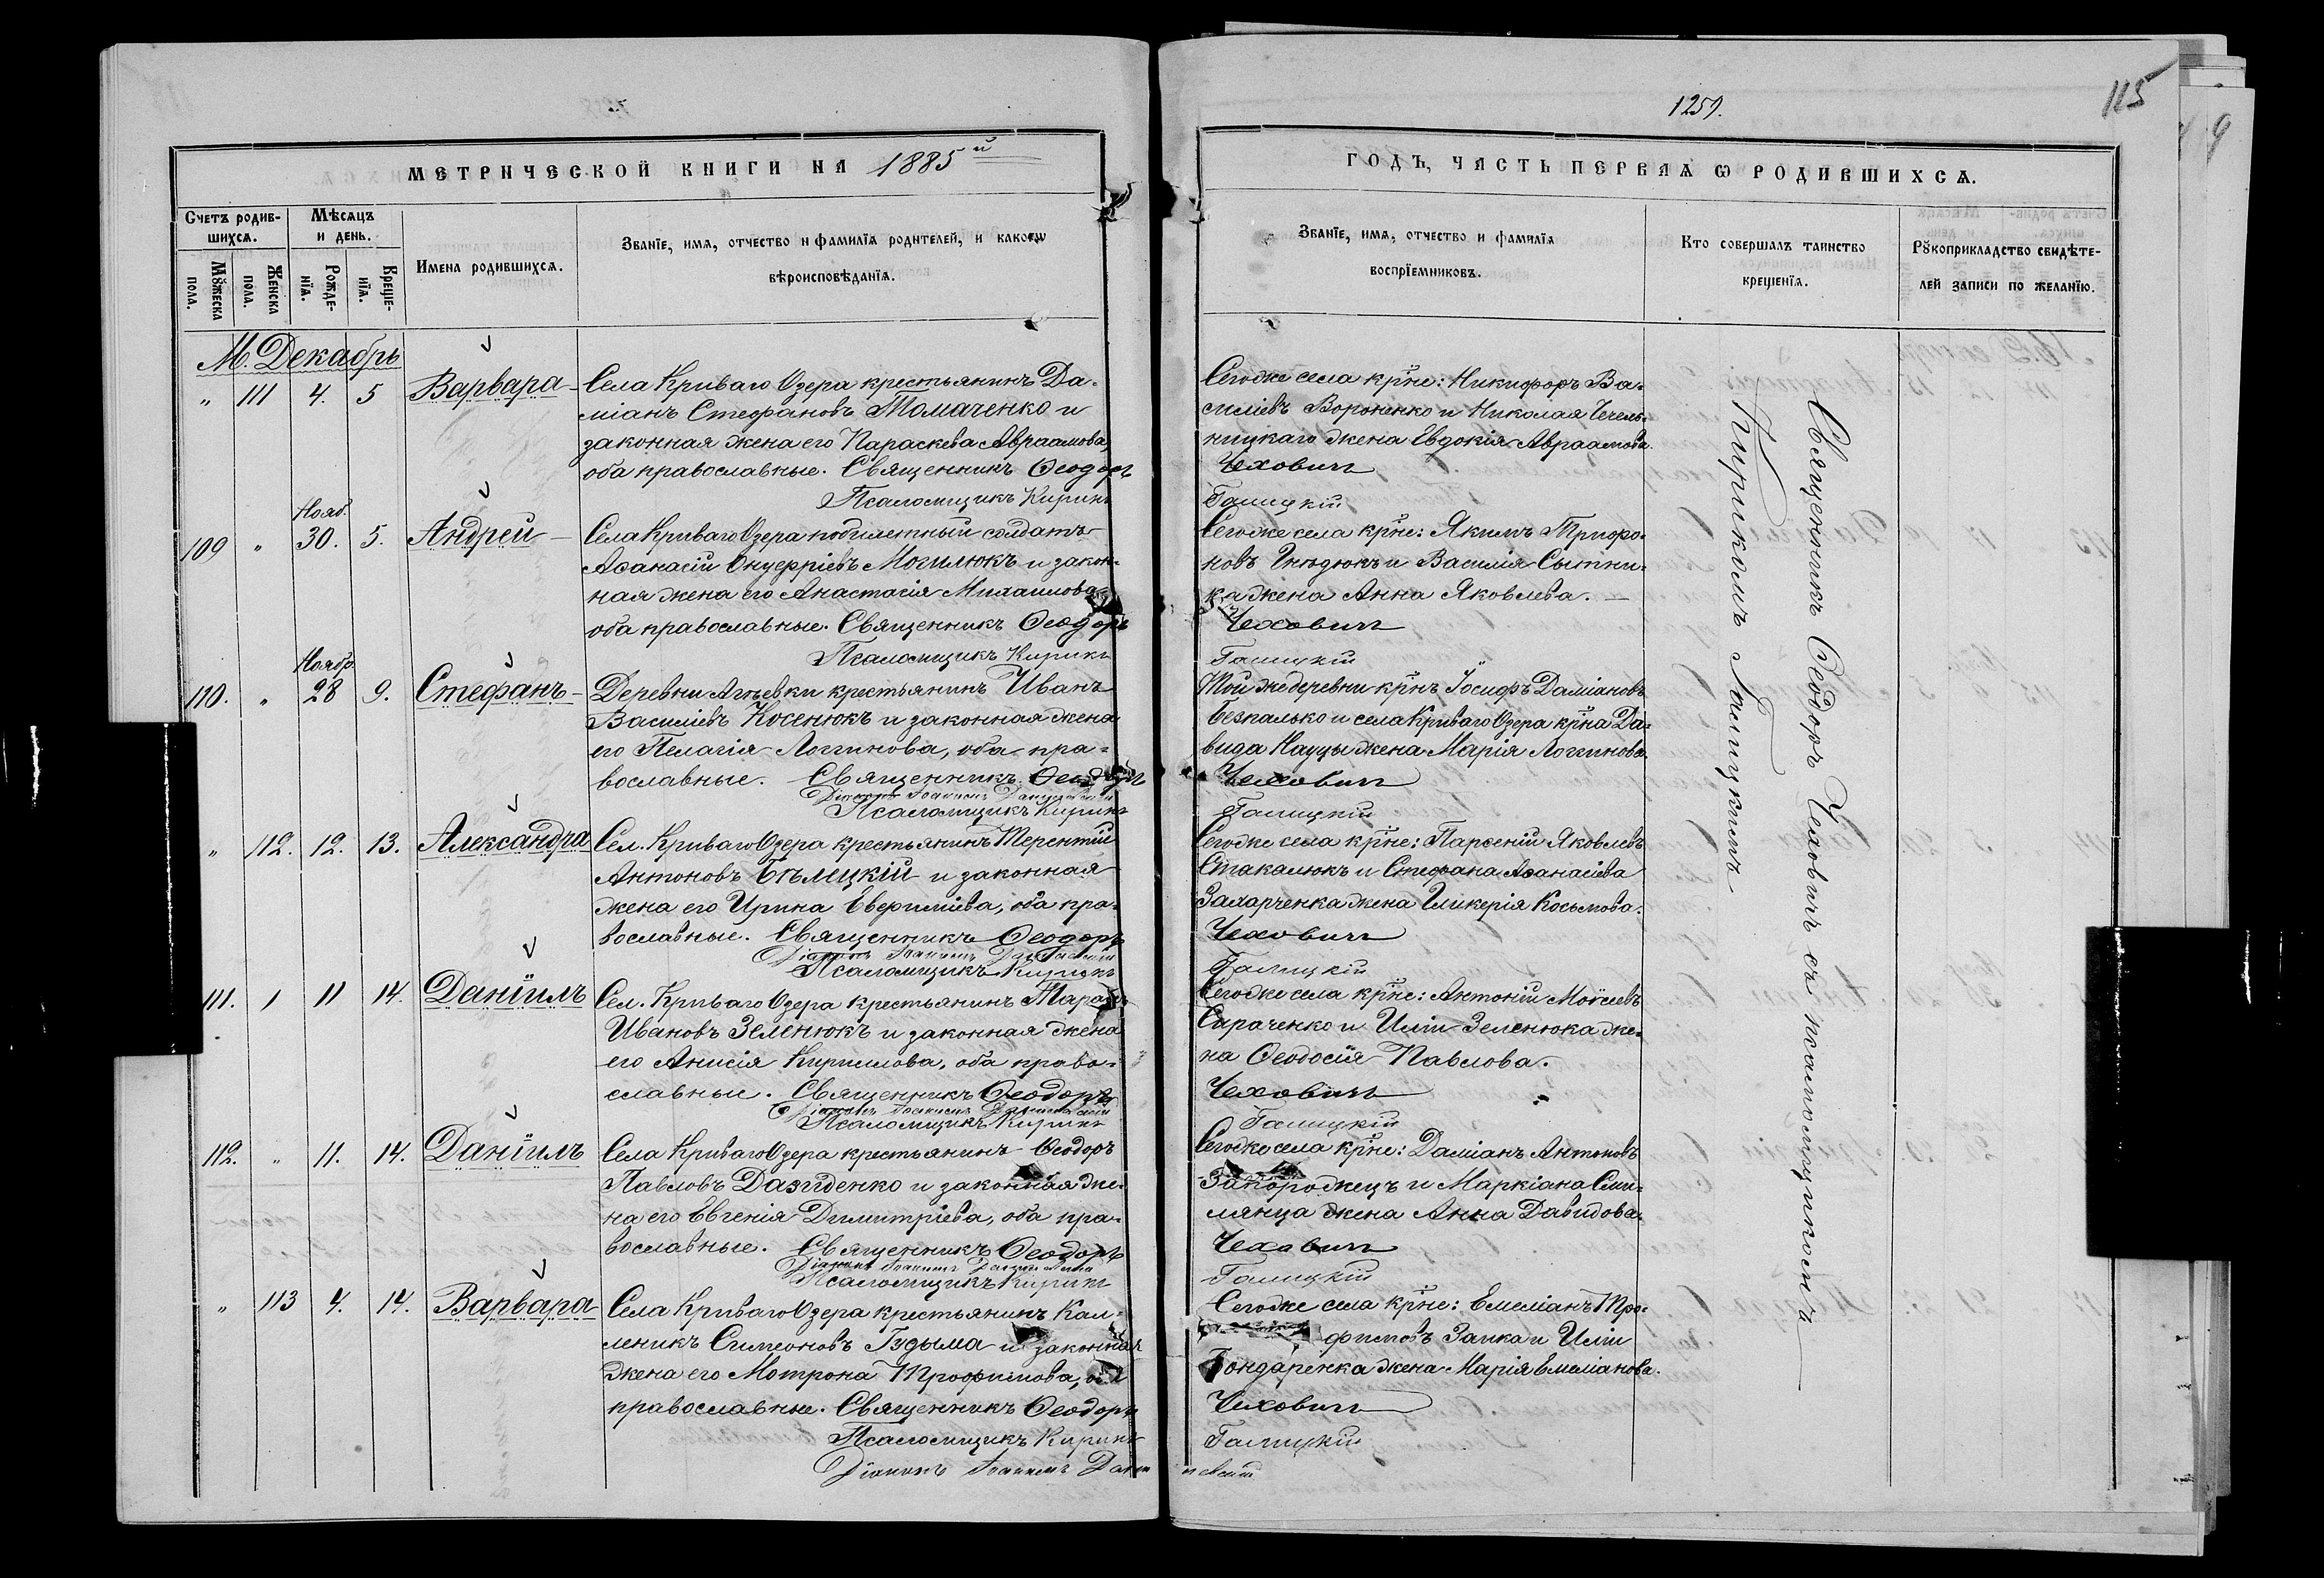 1259.
115
МЕТРИЧЕСКОЙ КНИГИ НА 1885й
ГОДЪ, ЧАСТЬ ПЕРВАѦ Ѡ РОДИВШИХСѦ.
Счетъ родив-
шихсѧ.
Мѣсѧцъ
и день.
Мꙋжеска
пола.
Женска
пола.
Рожде-
нїѧ.
Креще-
нїѧ.
Имена родившихсѧ.
Званїе, имѧ, отчество и фамилїѧ родителей, и какогѡ
вѣроисповѣданїѧ.
Званїе, имѧ, отчество и фамилїѧ
воспрїемниковъ.
Кто совершалъ таинство
крещенїѧ.
Рꙋкоприкладство свидѣте-
лей записи по желанїю.
М. Декабрь
" 111 4. 5 Варвара
Села Криваго Озера крестьянинъ Да-
міанъ Стефановъ Томаченко и
законная жена его Параскева Авраамова,
оба православные. Священникъ Ѳеодоръ
Псаломщикъ Кирикъ
Тогоже села кр͠не: Никифоръ Ва-
силіевъ Вороненко и Николая Чечель-
ницкаго жена Евдокія Авраамова.
Чеховичъ
Галицкій
109 " Нояб. 30. 5. Андрей
Села Криваго Озера побилетный солдатъ
Аѳанасій Онуфріевъ Могилюкъ и закон-
ная жена его Анастасія Михаилова
оба православные. Священникъ Ѳеодоръ
Псаломщикъ Кирикъ
Тогоже села кр͠не: Якимъ Трифо-
новъ Гнѣдюкъ и Василія Сытни-
ка жена Анна Яковлева.
Чеховичъ
Галицкій
110. " Ноябр. 28 9. Стефанъ
Деревни Агѣевки крестьянинъ Иванъ
Василіевъ Косенюкъ и законная жена
его Пелагія Логгинова, оба пра-
вославные. Священникъ Ѳеодоръ
Діаконъ Іоаннъ
Псаломщикъ Кирикъ
Той же деревни кр͠нъ Іосифъ Даміановъ
Безпалько и села Криваго Озера кр͠на Да-
вида Кауцы жена Марія Логгинова.
Чеховичъ
Галицкій
" 112. 12. 13. Александра
Сел. Криваго Озера крестьянинъ Терентій
Антоновъ Бѣлецкій и законная
жена его Ирина Евфиміева, оба пра-
вославные. Священникъ Ѳеодоръ
Діаконъ Іоаннъ
Псаломщикъ Кирикъ
Тогоже села кр͠не: Парѳеній Яковлевъ
Стакалюкъ и Стефана Аѳанасіева
Захарченка жена Гликерія Косьмова.
Чеховичъ
Галицкій
111. 1 11 14. Даніилъ
Сел. Криваго Озера крестьянинъ Тарасъ
Ивановъ Зеленюкъ и законная жена
его Анисія Кириллова, оба право-
славные. Священникъ Ѳеодоръ
Діаконъ Іоаннъ
Псаломщикъ Кирикъ
Тогоже села кр͠не: Антоній Моѵсеевъ
Сараченко и Иліи Зеленюка же-
на Ѳеодосія Павлова.
Чеховичъ
Галицкій
112. " 11. 14. Даніилъ
Села Криваго Озера крестьянинъ Ѳеодоръ
Павловъ Дазиденко и законная же-
на его Евгенія Димитріева, оба пра-
вославные. Священникъ Ѳеодоръ
Діаконъ Іоаннъ
Псаломщикъ Кирикъ
Тогоже села кр͠не: Даміанъ Антоновъ
Запорожецъ и Маркіана Сми-
лянца жена Анна Давидова.
Чеховичъ
Галицкій
" 113 4. 14. Варвара
Села Криваго Озера крестьянинъ Кал-
леникъ Симеоновъ Гудыма и законная
жена его Мотрона Трофимова, оба
православные. Священникъ Ѳеодоръ
Псаломщикъ Кирикъ
Діаконъ Іоаннъ
Тогоже села кр͠не: Емеліанъ Тро-
фимовъ Заика и Иліи
Бондаренка жена Марія Емеліанова.
Чеховичъ
Галицкій
Священникъ Ѳеодоръ Чеховичъ съ псаломщикомъ
Кирикомъ Галицкимъ